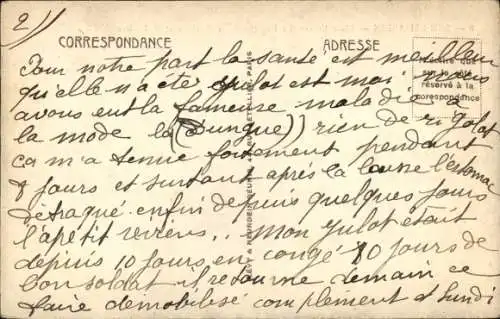 2)
CORRESPONDANCE ADRESSE
Pour notre part la santé est meilleur
qu'elle n'a été moi
avons eut la fameuse maladie
la mode la (Dungue)) rien de rigolot
ça m'a tenue fortement pendant
8 jours et surtout après la l'estomac
détraqué enfin depuis quelques jours
l'apétit reviens.. mon Julot était
depuis 10 jours en congé 10 jours de
bon soldat il retourne demain ce
faire démobilisé complement et lundi
réservé à la
correspondance